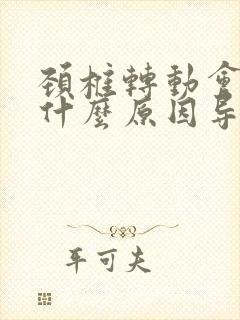 頚椎轉動會
什麼原因导
平可夫